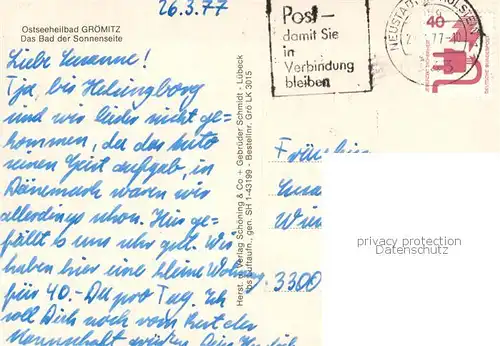 26.3.77
Ostseeheilbad GRÖMITZ
Das Bad der Sonnenseite
Post-
damit Sie
in
Verbindung
bleiben
NEUSTADT HOLSTEIN
40
Liebe Susanne!
Tja, bis Helsingborg
sind wir leider nicht ge-
kommen, da das Auto
seinen Geist aufgab, in
Dänemark waren wir
allerdings schon. Hier ge-
fällt es uns sehr gut. Wir
haben hier eine kleine Wohnung
für 40.- DM pro Tag. Ich
soll Dich noch vom Rest der
Mannschaft grüßen. Dein
Herst. u. Verlag Schöning & Co + Gebrüder Schmidt · Lübeck
Luftaufn., gen. SH 1-43199 - Bestellnr. Grö LK 3015
Fräulein
Susa
3300
privacy protection
Datenschutz